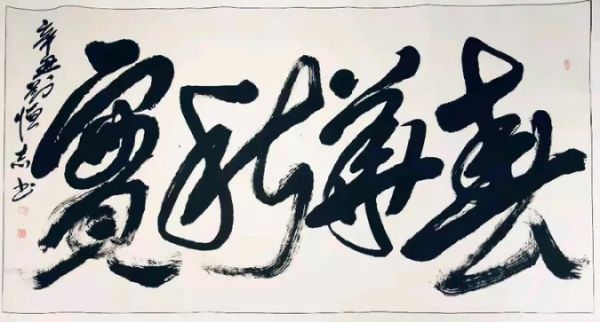 春華秋實
辛丑劉恒志书